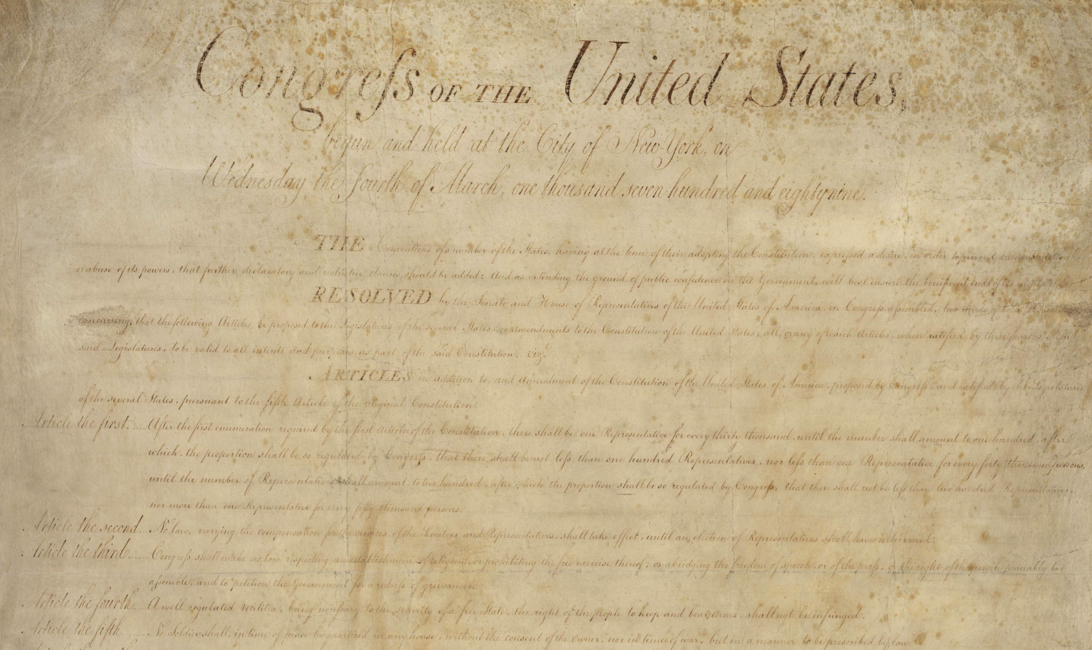 Congress OF THE United States,
begun and held at the City of New-York, on
Wednesday the fourth of March, one thousand seven hundred and eighty nine.
THE Conventions of a number of the States, having at the time of their adopting the Constitution, expressed a desire, in order to prevent
or abuse of its powers, that further declaratory and restrictive clauses should be added: And as extending the ground of public confidence in the Government, will best ensure the beneficent ends of its
RESOLVED by the Senate and House of Representatives of the United States of America, in Congress assembled, two thirds of
concurring, that the following Articles be proposed to the Legislatures of the several States, as amendments to the Constitution of the United States, all, or any of which Articles, when ratified by three fourths of the
said Legislatures, to be valid to all intents and purposes, as part of the said Constitution. vizt
ARTICLES in addition to, and Amendment of the Constitution of the United States of America, proposed by Congress, and ratified by the Legislatures
of the several States, pursuant to the fifth Article of the original Constitution.
Article the first. .... After the first enumeration required by the first Article of the Constitution, there shall be one Representative for every thirty thousand, until the number shall amount to one hundred, after
which, the proportion shall be so regulated by Congress, that there shall be not less than one hundred Representatives, nor less than one Representative for every forty thousand persons,
until the number of Representatives shall amount to two hundred, after which the proportion shall be so regulated by Congress, that there shall not be less than two hundred Representatives,
nor more than one Representative for every fifty thousand persons.
Article the second. ... No law, varying the compensation for the services of the Senators and Representatives, shall take effect, until an election of Representatives shall have intervened.
Article the third. .... Congress shall make no law respecting an establishment of religion, or prohibiting the free exercise thereof; or abridging the freedom of speech, or of the press; or the right of the people peaceably to
assemble, and to petition the Government for a redress of grievances.
Article the fourth. ... A well regulated Militia, being necessary to the security of a free State, the right of the people to keep and bear Arms, shall not be infringed.
Article the fifth. .... No Soldier shall, in time of peace be quartered in any house, without the consent of the Owner, nor in time of war, but in a manner to be prescribed by law.